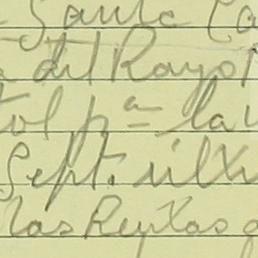 Santa Ca
del Rayo
tol pª la
Sept. últi
las Rentas